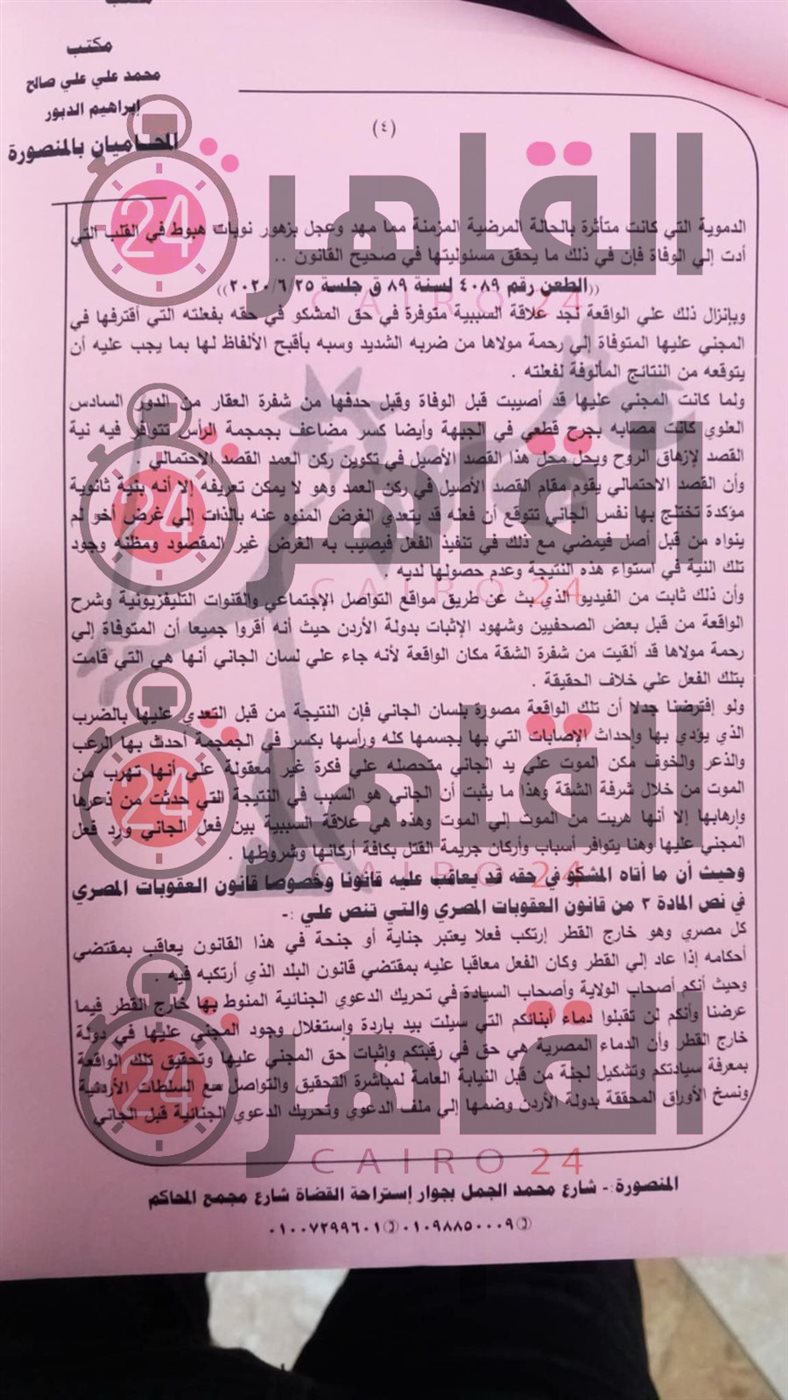 مكتب
مكتب
محمد علي علي صالح
إبراهيم الدبور
المحاميان بالمنصورة
(٤)
الدموية التي كانت متأثرة بالحالة المرضية المزمنة مما مهد وعجل بزهور نوبات هبوط في القلب التي
أدت إلي الوفاة فإن في ذلك ما يحقق مسئوليتها في صحيح القانون ..
((الطعن رقم ٤٠٨٩ لسنة ٨٩ ق جلسة ٢٠٢٠/٦/٢٥))
وبإنزال ذلك علي الواقعة نجد علاقة السببية متوفرة في حق المشكو في حقه بفعلته التي أقترفها في
المجني عليها المتوفاة إلي رحمة مولاها من ضربه الشديد وسبه بأقبح الألفاظ لها بما يجب عليه أن
يتوقعه من النتائج المألوفة لفعلته .
ولما كانت المجني عليها قد أصيبت قبل الوفاة وقبل حدفها من شفرة العقار من الدور السادس
العلوي كانت مصابه بجرح قطعي في الجبهة وأيضا كسر مضاعف بجمجمة الرأس تتوافر فيه نية
القصد لإزهاق الروح ويحل محل هذا القصد الأصيل في تكوين ركن العمد القصد الاحتمالي
وأن القصد الاحتمالي يقوم مقام القصد الأصيل في ركن العمد وهو لا يمكن تعريفه إلا أنه بنية ثانوية
مؤكدة تختلج بها نفس الجاني تتوقع أن فعله قد يتعدي الغرض المنوه عنه بالذات إلي غرض أخو لم
ينواه من قبل أصل فيمضي مع ذلك في تنفيذ الفعل فيصيب به الغرض غير المقصود ومظنة وجود
تلك النية في استواء هذه النتيجة وعدم حصولها لديه .
وأن ذلك ثابت من الفيديو الذي بث عن طريق مواقع التواصل الإجتماعي والقنوات التليفزيونية وشرح
الواقعة من قبل بعض الصحفيين وشهود الإثبات بدولة الأردن حيث أنه أقروا جميعا أن المتوفاة إلي
رحمة مولاها قد ألقيت من شفرة الشقة مكان الواقعة لأنه جاء علي لسان الجاني أنها هي التي قامت
بتلك الفعل علي خلاف الحقيقة .
ولو إفترضنا جدلا أن تلك الواقعة مصورة بلسان الجاني فإن النتيجة من قبل التعدي عليها بالضرب
الذي يؤدي بها وإحداث الإصابات التي بها بجسمها كله ورأسها بكسر في الجمجمة أحدث بها الرعب
والذعر والخوف مكن الموت علي يد الجاني متحصله علي فكرة غير معقولة علي أنها تهرب من
الموت من خلال شرفة الشقة وهذا ما يثبت أن الجاني هو السبب في النتيجة التي حدثت من ذعرها
وإرهابها إلا أنها هربت من الموت إلي الموت وهذه هي علاقة السببية بين فعل الجاني ورد فعل
المجني عليها وهنا يتوافر أسباب وأركان جريمة القتل بكافة أركانها وشروطها .
وحيث أن ما أتاه المشكو في حقه قد يعاقب عليه قانونا وخصوصا قانون العقوبات المصري
في نص المادة ٣ من قانون العقوبات المصري والتي تنص علي :-
كل مصري وهو خارج القطر إرتكب فعلا يعتبر جناية أو جنحة في هذا القانون يعاقب بمقتضي
أحكامه إذا عاد إلي القطر وكان الفعل معاقبا عليه بمقتضي قانون البلد الذي أرتكبه فيه .
وحيث أنكم أصحاب الولاية وأصحاب السيادة في تحريك الدعوي الجنائية المنوط بها خارج القطر فيما
عرضنا وأنكم لن تقبلوا دماء أبنائكم التي سيلت بيد باردة وإستغلال وجود المجني عليها في دولة
خارج القطر وأن الدماء المصريه هي حق في رقبتكم وإثبات حق المجني عليها وتحقيق تلك الواقعة
بمعرفة سيادتكم وتشكيل لجنة من قبل النيابة العامة لمباشرة التحقيق والتواصل مع السلطات الأردنية
ونسخ الأوراق المحققة بدولة الأردن وضمها إلي ملف الدعوي وتحريك الدعوي الجنائية قبل الجاني
المنصورة :- شارع محمد الجمل بجوار إستراحة القضاة شارع مجمع المحاكم
٠١٠٩٨٨٥٠٠٠٩ ٠١٠٠٧٢٩٩٦٠١
القاهرة 24
CAIRO 24
القاهرة 24
CAIRO 24
القاهرة 24
CAIRO 24
القاهرة 24
CAIRO 24